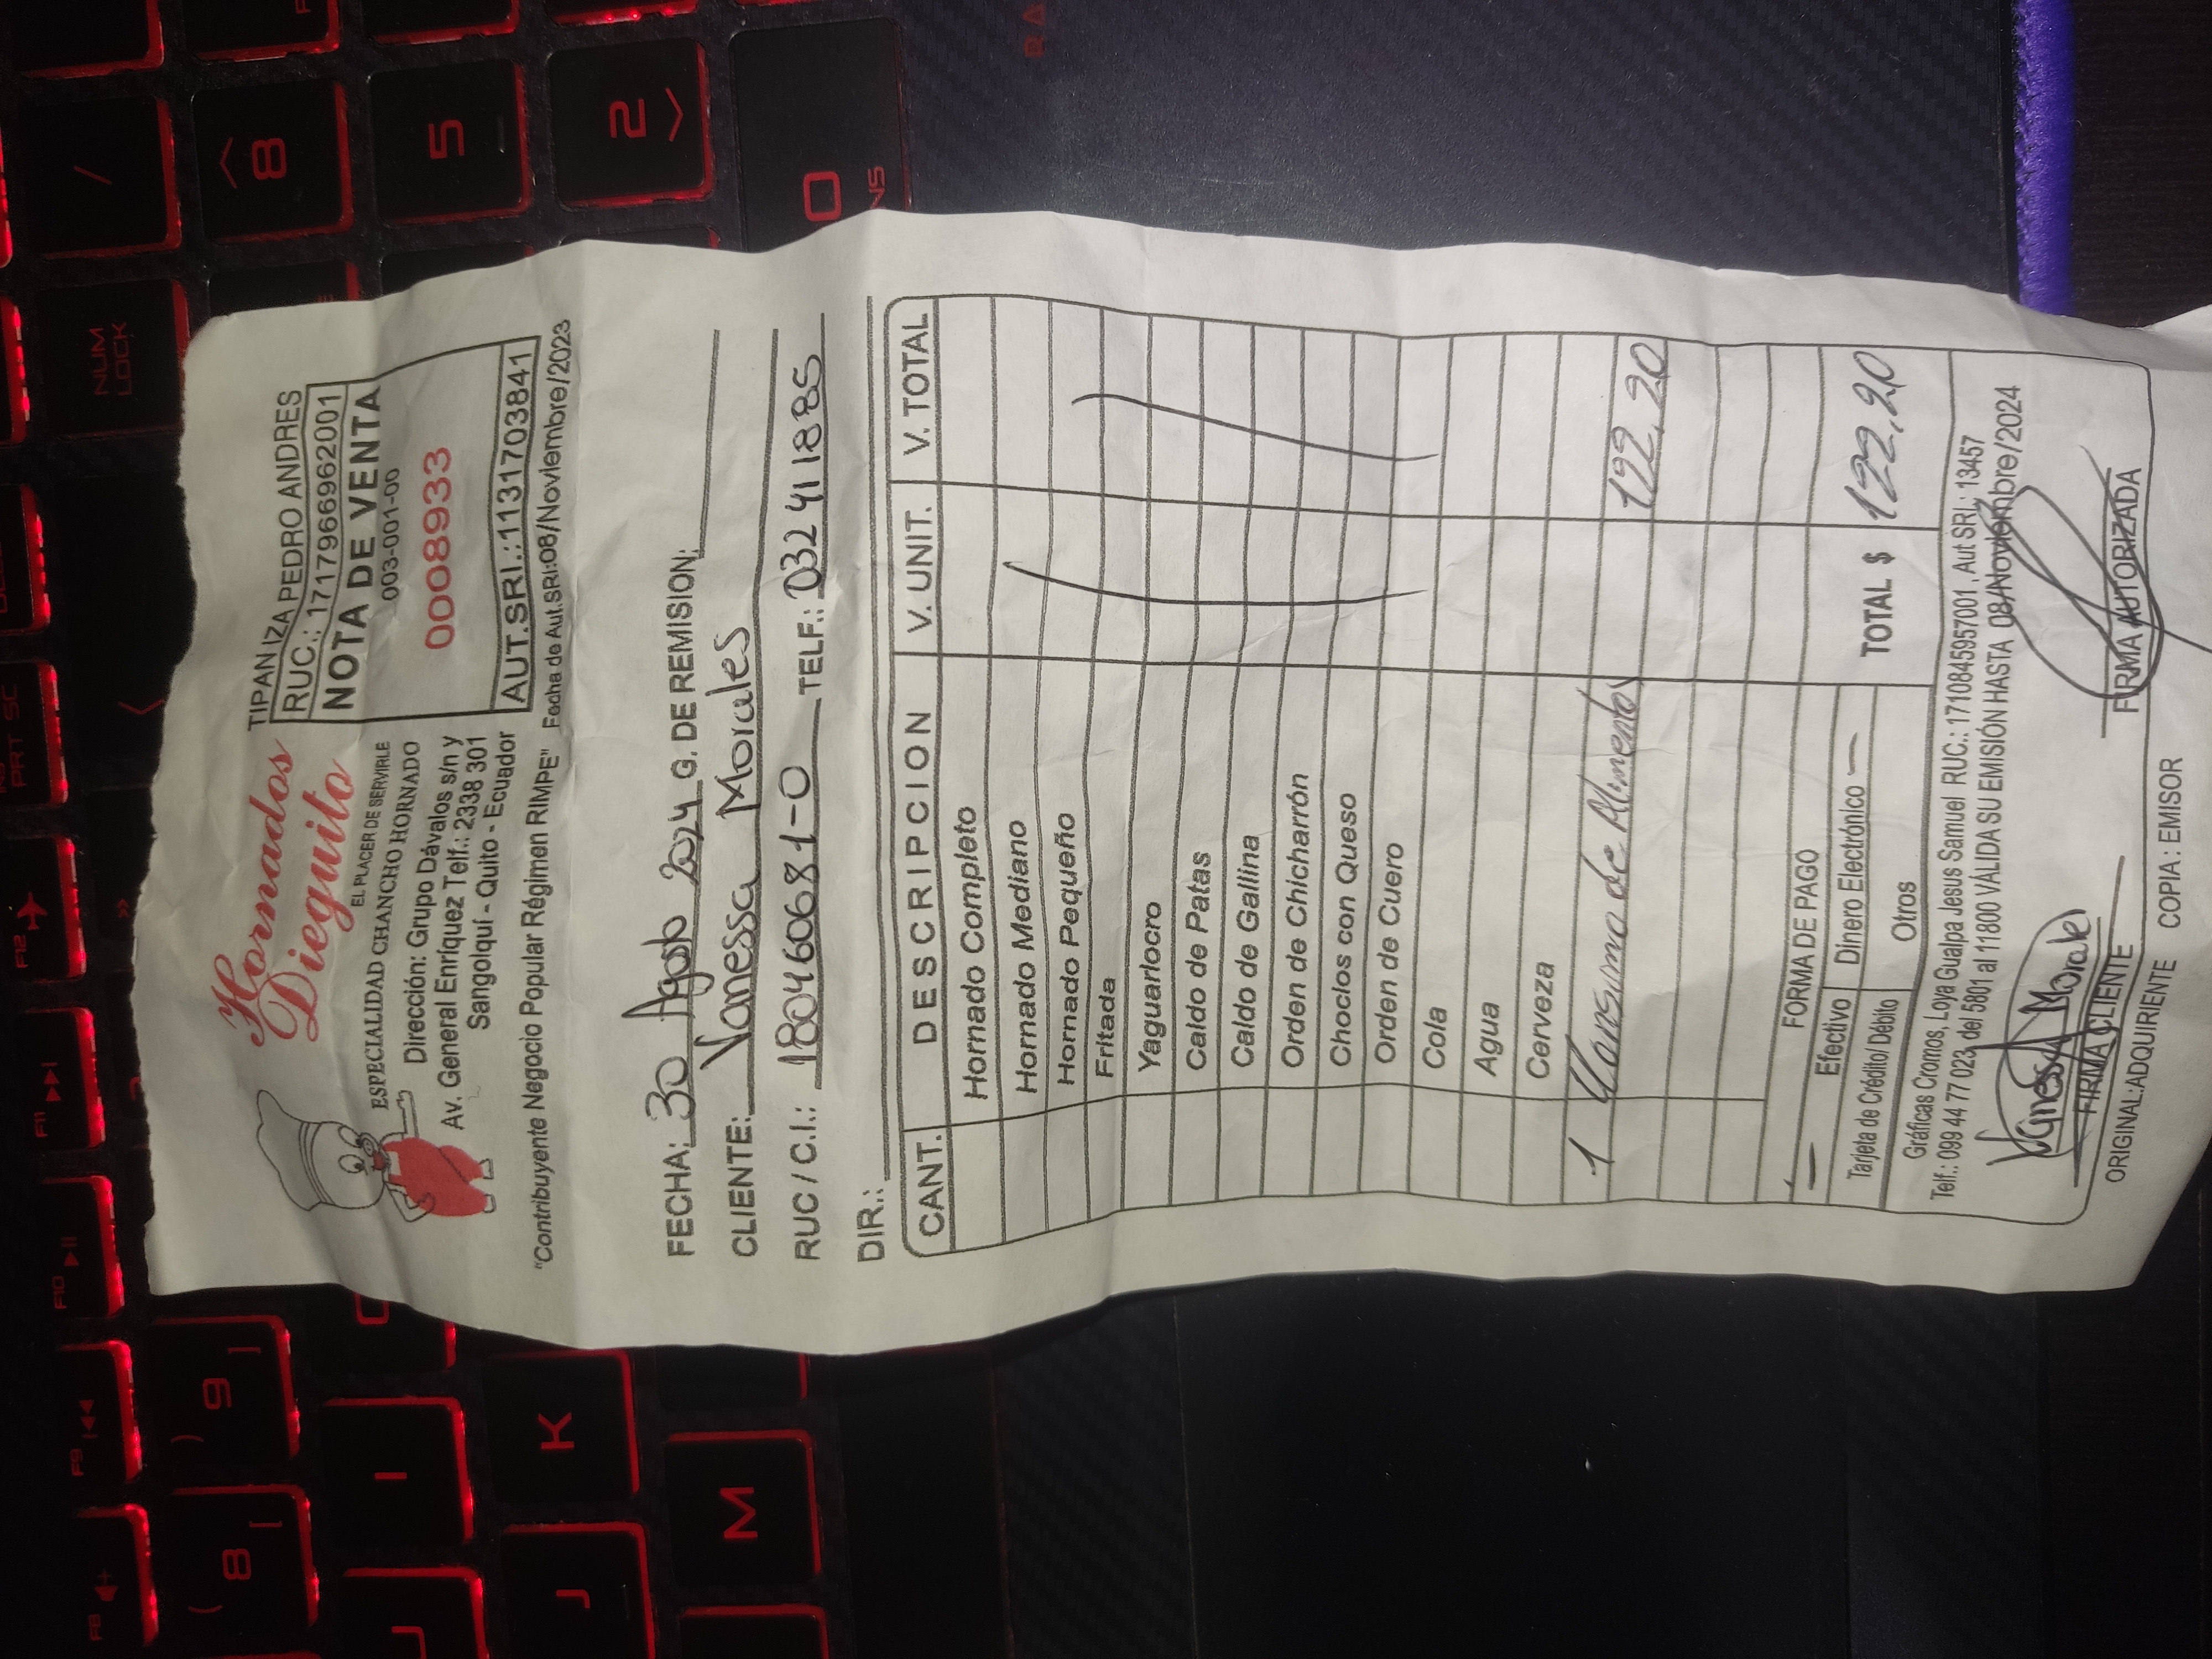 Hornados
Dieguito
EL PLACER DE SERVIRLE
ESPECIALIDAD CHANCHO HORNADO
Dirección: Grupo Dávalos s/n y
Av. General Enríquez Telf.: 2338 301
Sangolquí - Quito - Ecuador
"Contribuyente Negocio Popular Régimen RIMPE"
TIPAN IZA PEDRO ANDRES
RUC.: 1717966962001
NOTA DE VENTA
003-001-00
0008933
AUT.SRI.:1131703841
Fecha de Aut.SRI:08/Noviembre/2023
FECHA: 30 Agosto 2024 G. DE REMISION:
CLIENTE: Vanessa Morales
RUC / C.I.: 180460681-0 TELF.: 032411885
DIR.:
CANT. DESCRIPCION V. UNIT. V. TOTAL
Hornado Completo
Hornado Mediano
Hornado Pequeño
Fritada
Yaguarlocro
Caldo de Patas
Caldo de Gallina
Orden de Chicharrón
Choclos con Queso
Orden de Cuero
Cola
Agua
Cerveza
1 Consumo de Alimentos 122,20
FORMA DE PAGO
Efectivo Dinero Electrónico
Tarjeta de Crédito/ Débito Otros
TOTAL $ 122,20
Gráficas Cromos, Loya Gualpa Jesus Samuel RUC.: 1710845957001, Aut SRI.: 13457
Telf.: 099 44 77 023, del 5801 al 11800 VÁLIDA SU EMISIÓN HASTA 08/Noviembre/2024
Vanessa Morales
FIRMA CLIENTE FIRMA AUTORIZADA
ORIGINAL:ADQUIRIENTE COPIA : EMISOR
F8
F9
F10
F11
F12
PRT SC
NUM
LOCK
/
( 8 [
) 9 ]
8
I
5
J
K
2
M
0